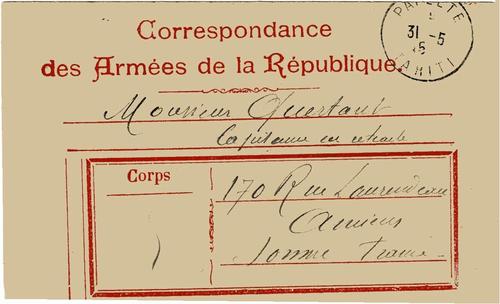 Correspondance
des Armées de la République.
PAPEETE
31 -5
15
TAHITI
Monsieur Quertant
Capitaine en retraite
Corps
170 Rue Laurendeau
Amiens
Somme France